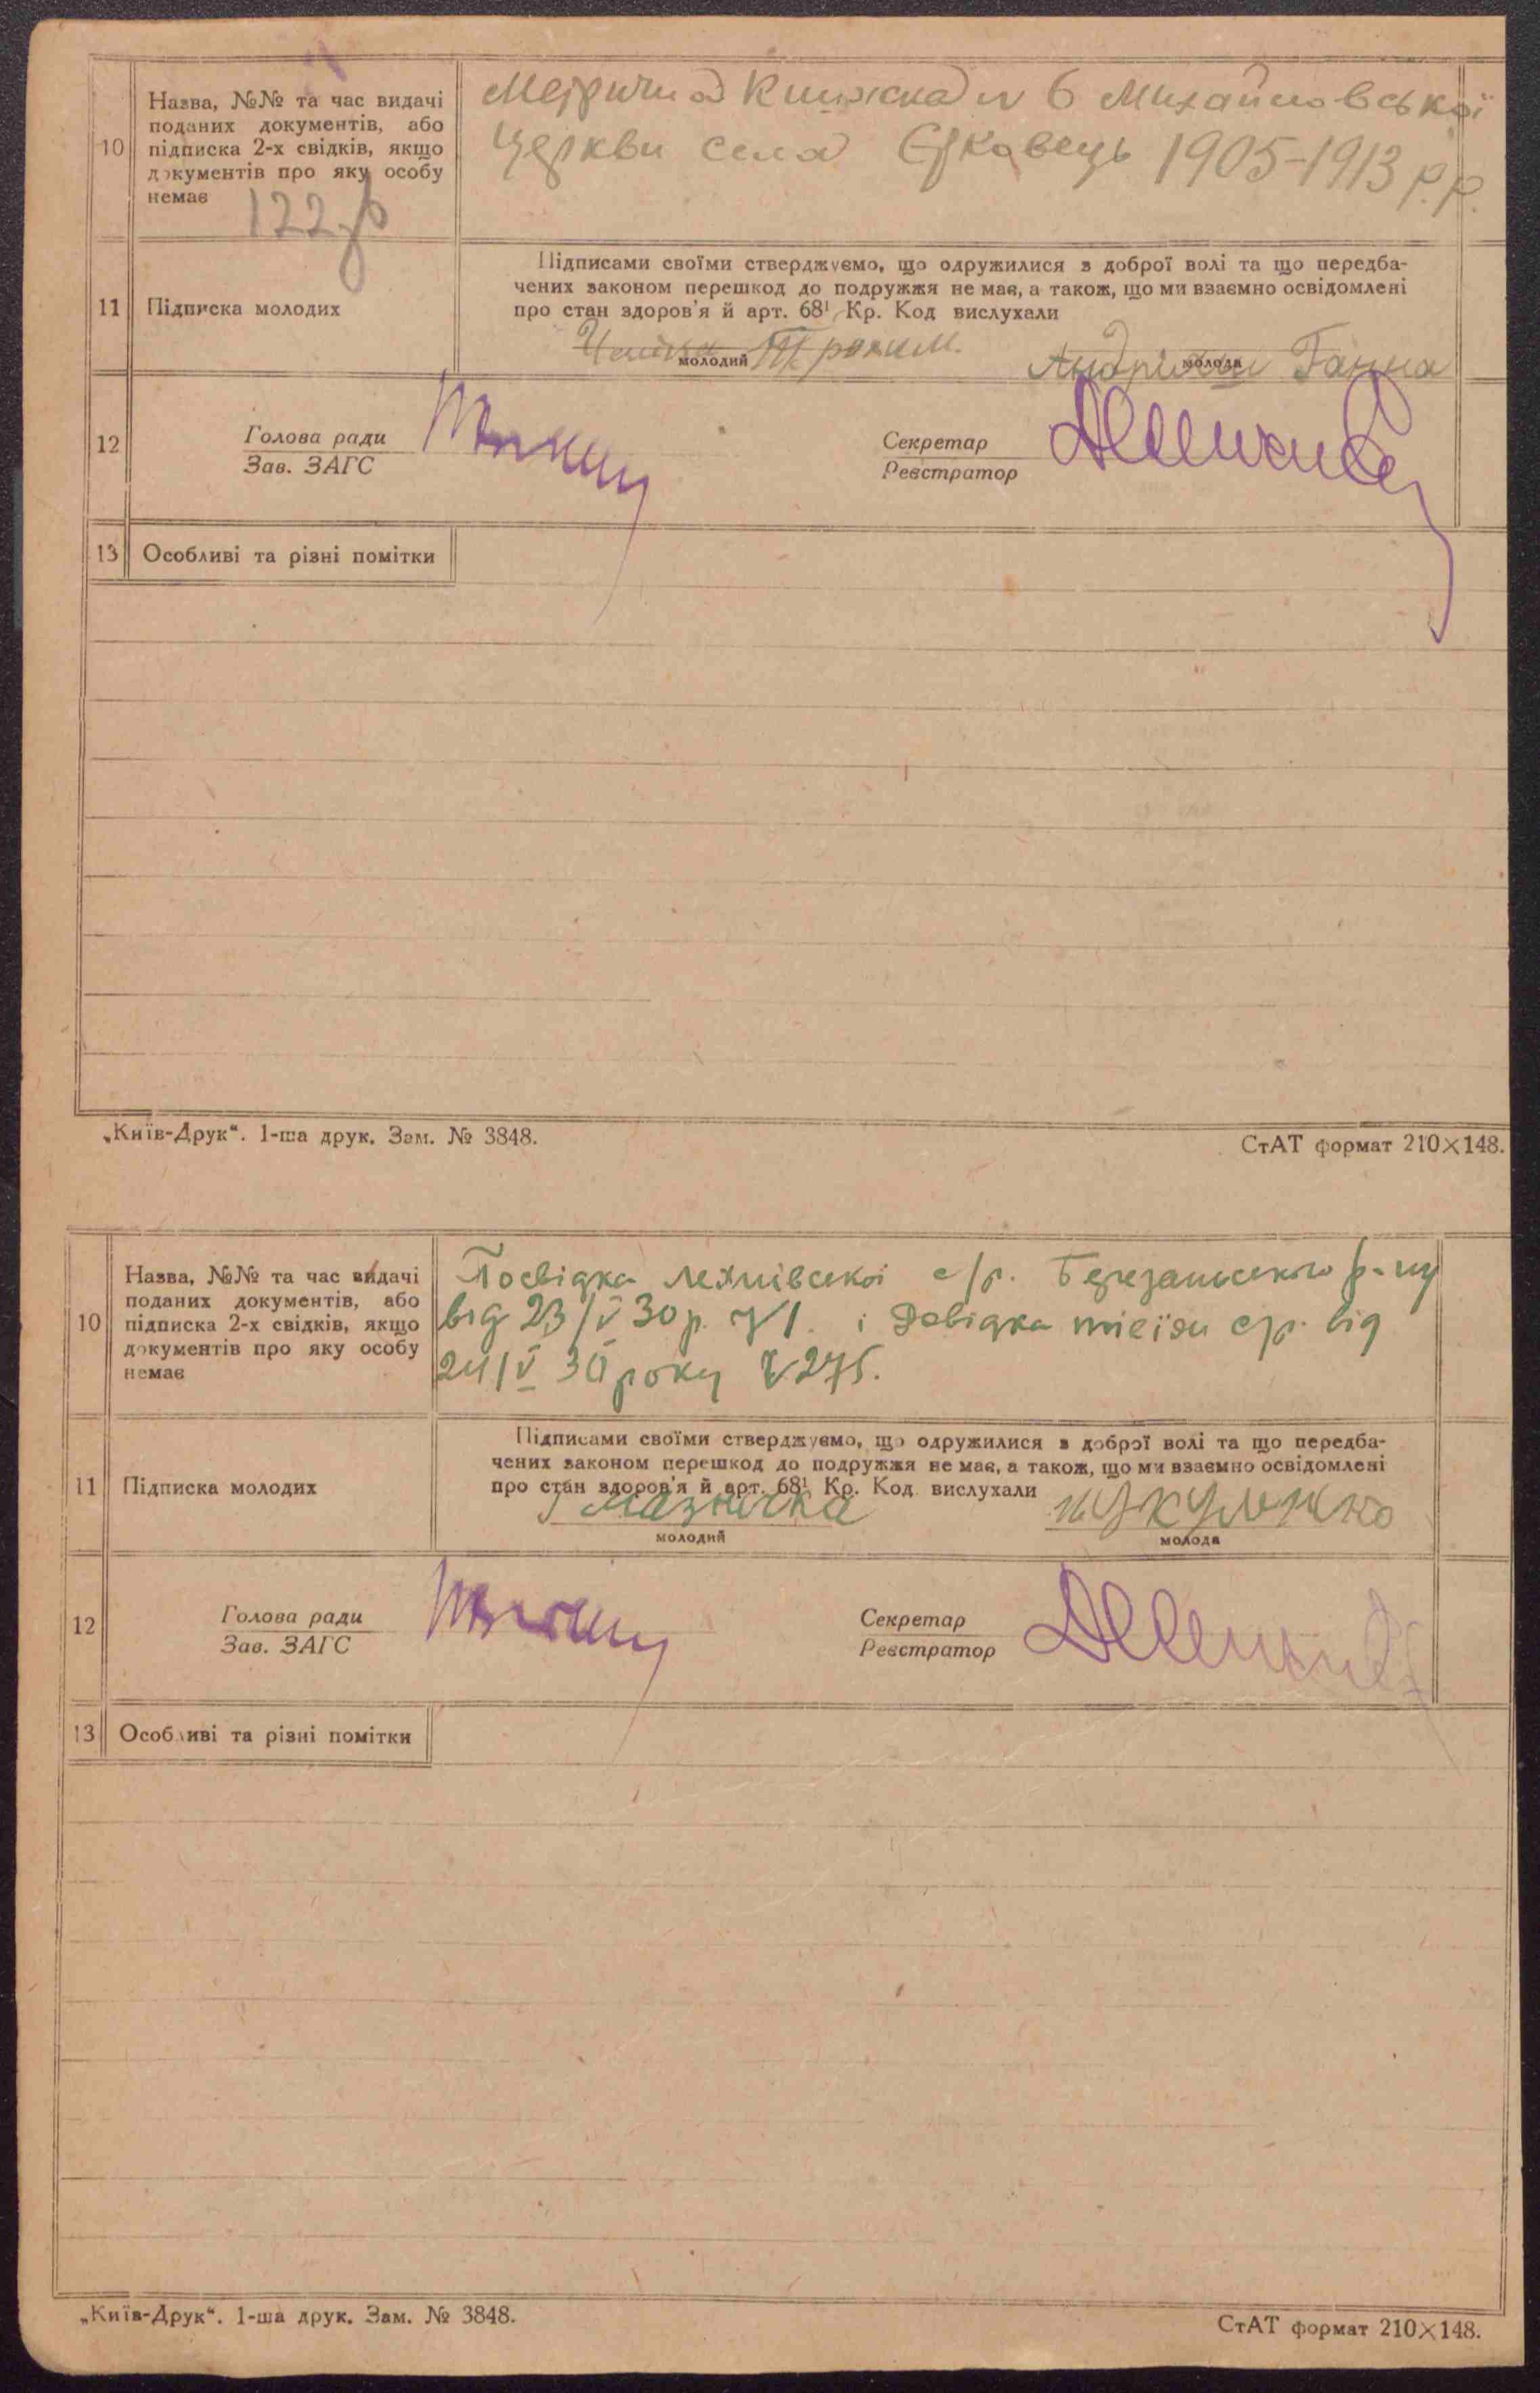 10
Назва, №№ та час видачі
поданих документів, або
підписка 2-х свідків, якщо
документів про яку особу
немає
122
Метрична Книжка № 6 Михайловської
Церкви села Єрковець 1905-1913 р.р.
11 Підписка молодих
Підписами своїми стверджуємо, що одружилися з доброї волі та що передба-
чених законом перешкод до подружжя не має, а також, що ми взаємно освідомлені
про стан здоров'я й арт. 68¹ Кр. Код вислухали
Трохим Ганна
молодий молода
12
Голова ради
Зав. ЗАГС
Секретар
Реєстратор
13 Особливі та різні помітки
„Київ-Друк“. 1-ша друк. Зам. № 3848. СтАТ формат 210×148.
10
Назва, №№ та час видачі
поданих документів, або
підписка 2-х свідків, якщо
документів про яку особу
немає
Посвідка Лехнівської с/р. Березанського р-ну
від 23/V 30р. №1. і Довідка тієїж с/р. від
24/V 30 року №275.
11 Підписка молодих
Підписами своїми стверджуємо, що одружилися з доброї волі та що передба-
чених законом перешкод до подружжя не має, а також, що ми взаємно освідомлені
про стан здоров'я й арт. 68¹ Кр. Код вислухали
молодий молода
12
Голова ради
Зав. ЗАГС
Секретар
Реєстратор
13 Особливі та різні помітки
„Київ-Друк“. 1-ша друк. Зам. № 3848. СтАТ формат 210×148.